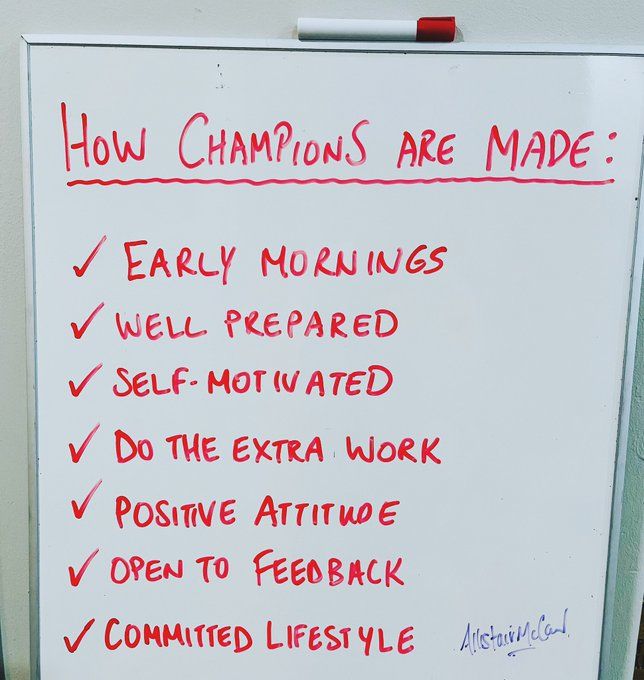 HOW CHAMPIONS ARE MADE:
✓ EARLY MORNINGS
✓ WELL PREPARED
✓ SELF-MOTIVATED
✓ DO THE EXTRA WORK
✓ POSITIVE ATTITUDE
✓ OPEN TO FEEDBACK
✓ COMMITTED LIFESTYLE
Allistair McCaw